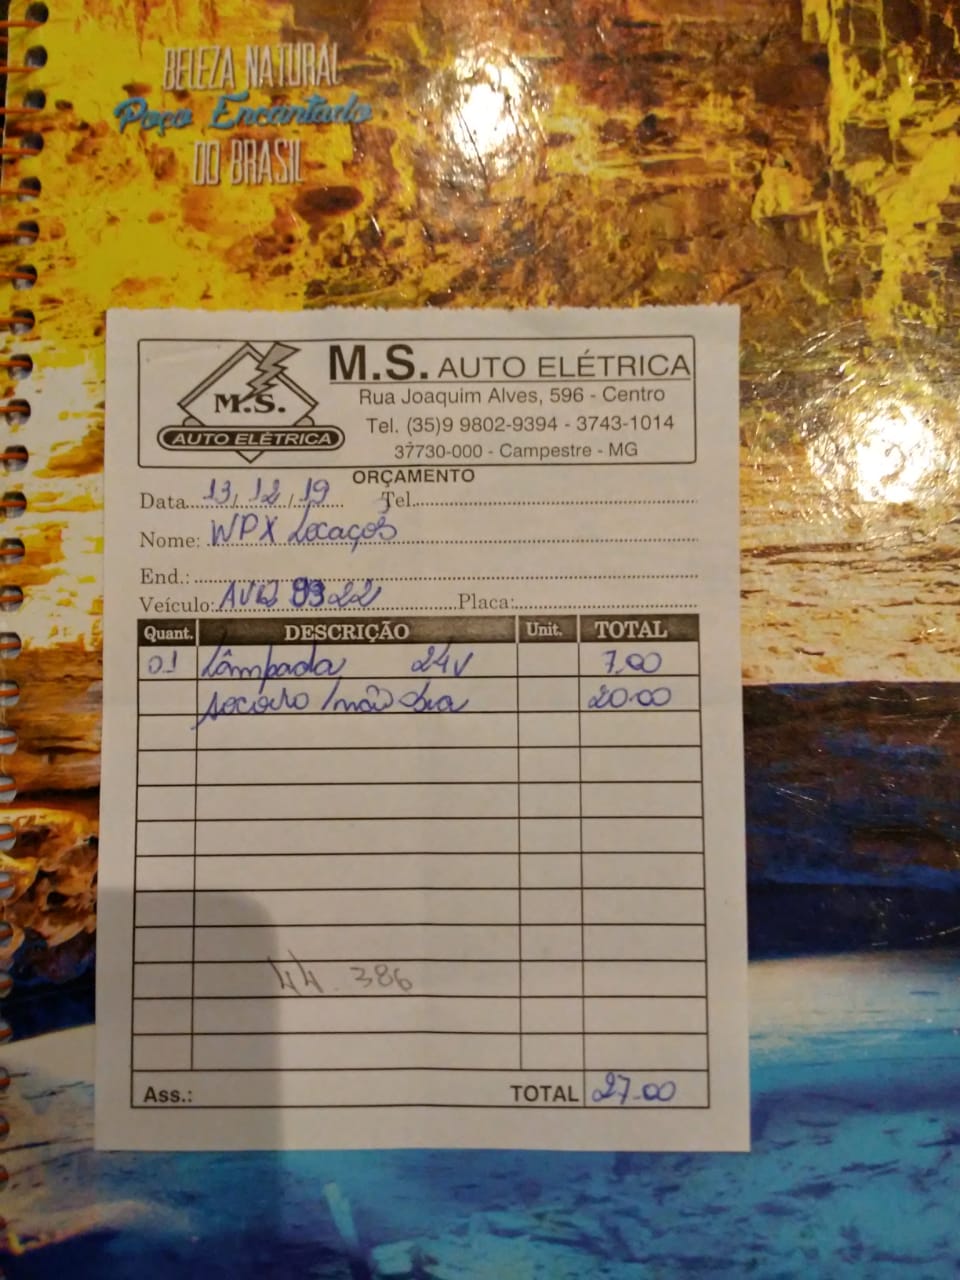 BELEZA NATURAL
Poço Encantado
DO BRASIL
M.S.
AUTO ELÉTRICA
M.S. AUTO ELÉTRICA
Rua Joaquim Alves, 596 - Centro
Tel. (35)9 9802-9394 - 3743-1014
37730-000 - Campestre - MG
ORÇAMENTO
Data 13/12/19 Tel.
Nome: WPX Locaços
End.:
Veículo: 9922 Placa:
Quant. DESCRIÇÃO Unit. TOTAL
01 Lâmpada 24V 7.00
socorro/mão obra 20.00
44.386
Ass.: TOTAL 27.00